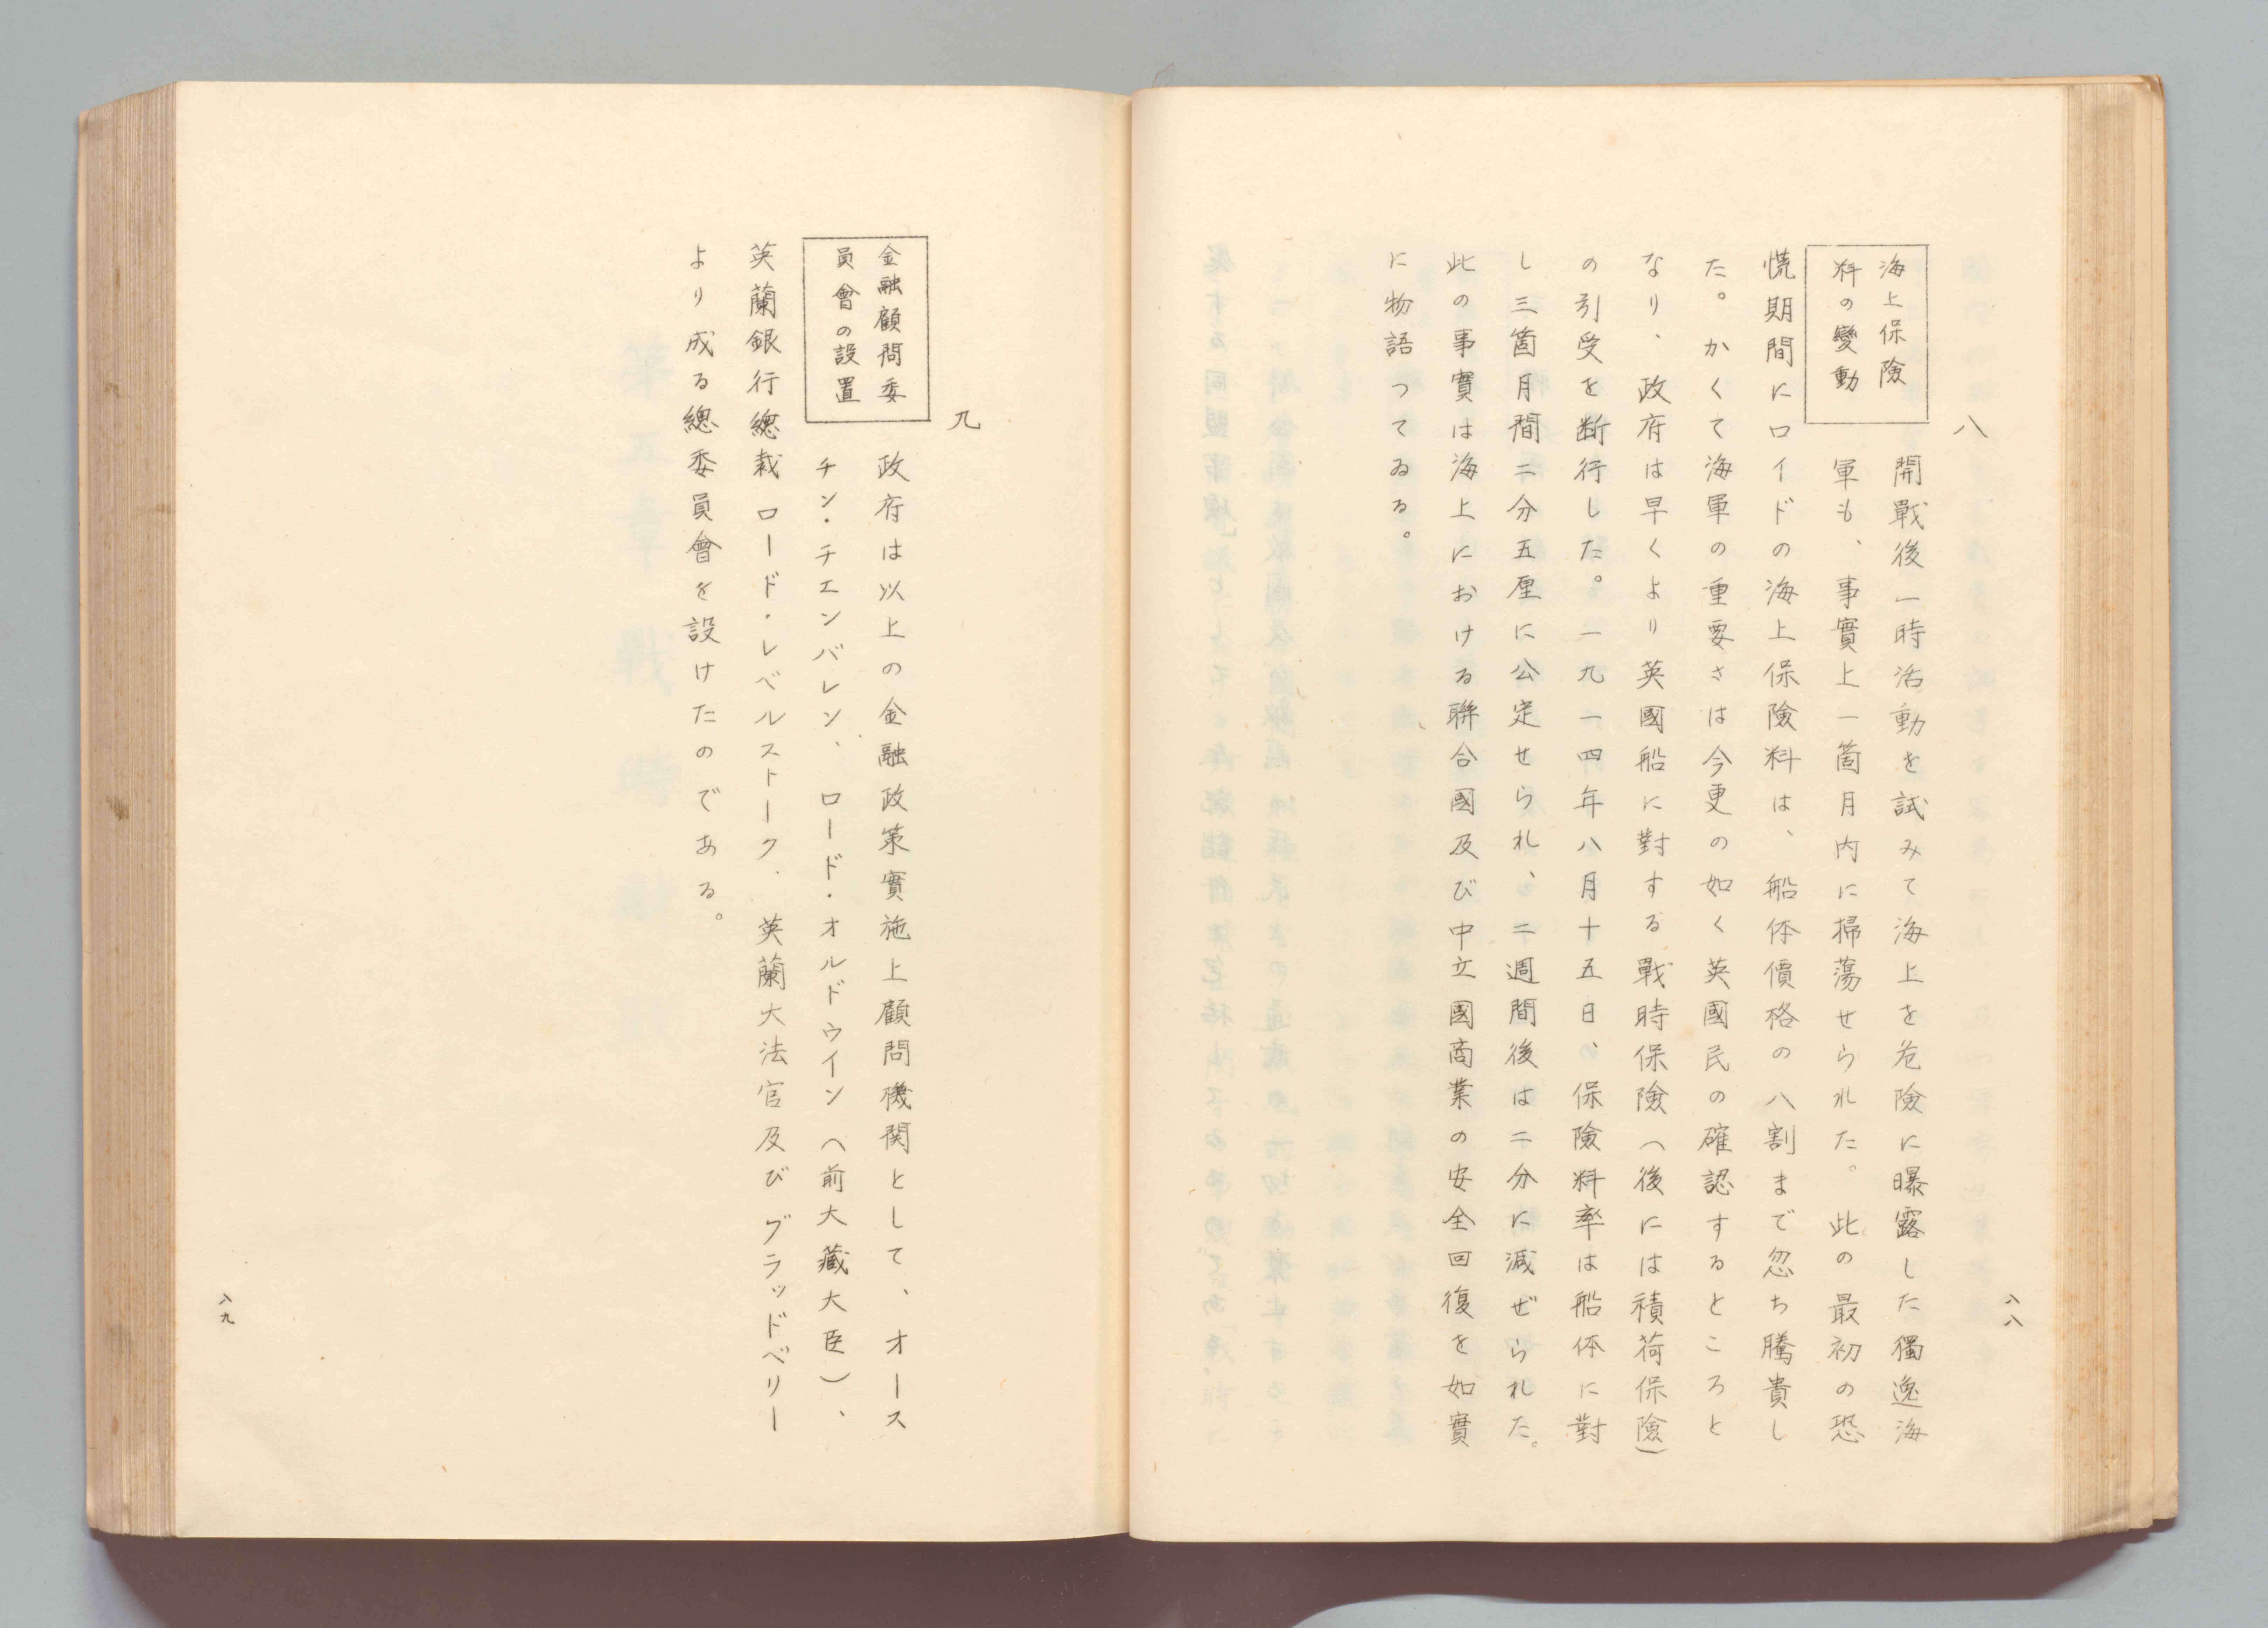 八
海上保險
料の變動
開戰後一時活動を試みて海上を危險に曝露した獨逸海
軍も、事實上一箇月内に掃蕩せられた。此の最初の恐
慌期間にロイドの海上保險料は、船体價格の八割まで忽ち騰貴し
た。かくて海軍の重要さは今更の如く英國民の確認するところと
なり、政府は早くより英國船に對する戰時保險（後には積荷保險）
の引受を断行した。一九一四年八月十五日、保險料率は船体に對
し三箇月間二分五厘に公定せられ、二週間後は二分に減ぜられた。
此の事實は海上における聯合國及び中立國商業の安全回復を如實
に物語つてゐる。
八八
九
金融顧問委
員會の設置
政府は以上の金融政策實施上顧問機関として、オース
チン・チエンバレン、ロード・オルドウイン（前大藏大臣）、
英蘭銀行總裁ロード・レベルストーク、英蘭大法官及びブラッドベリー
より成る總委員會を設けたのである。
八九